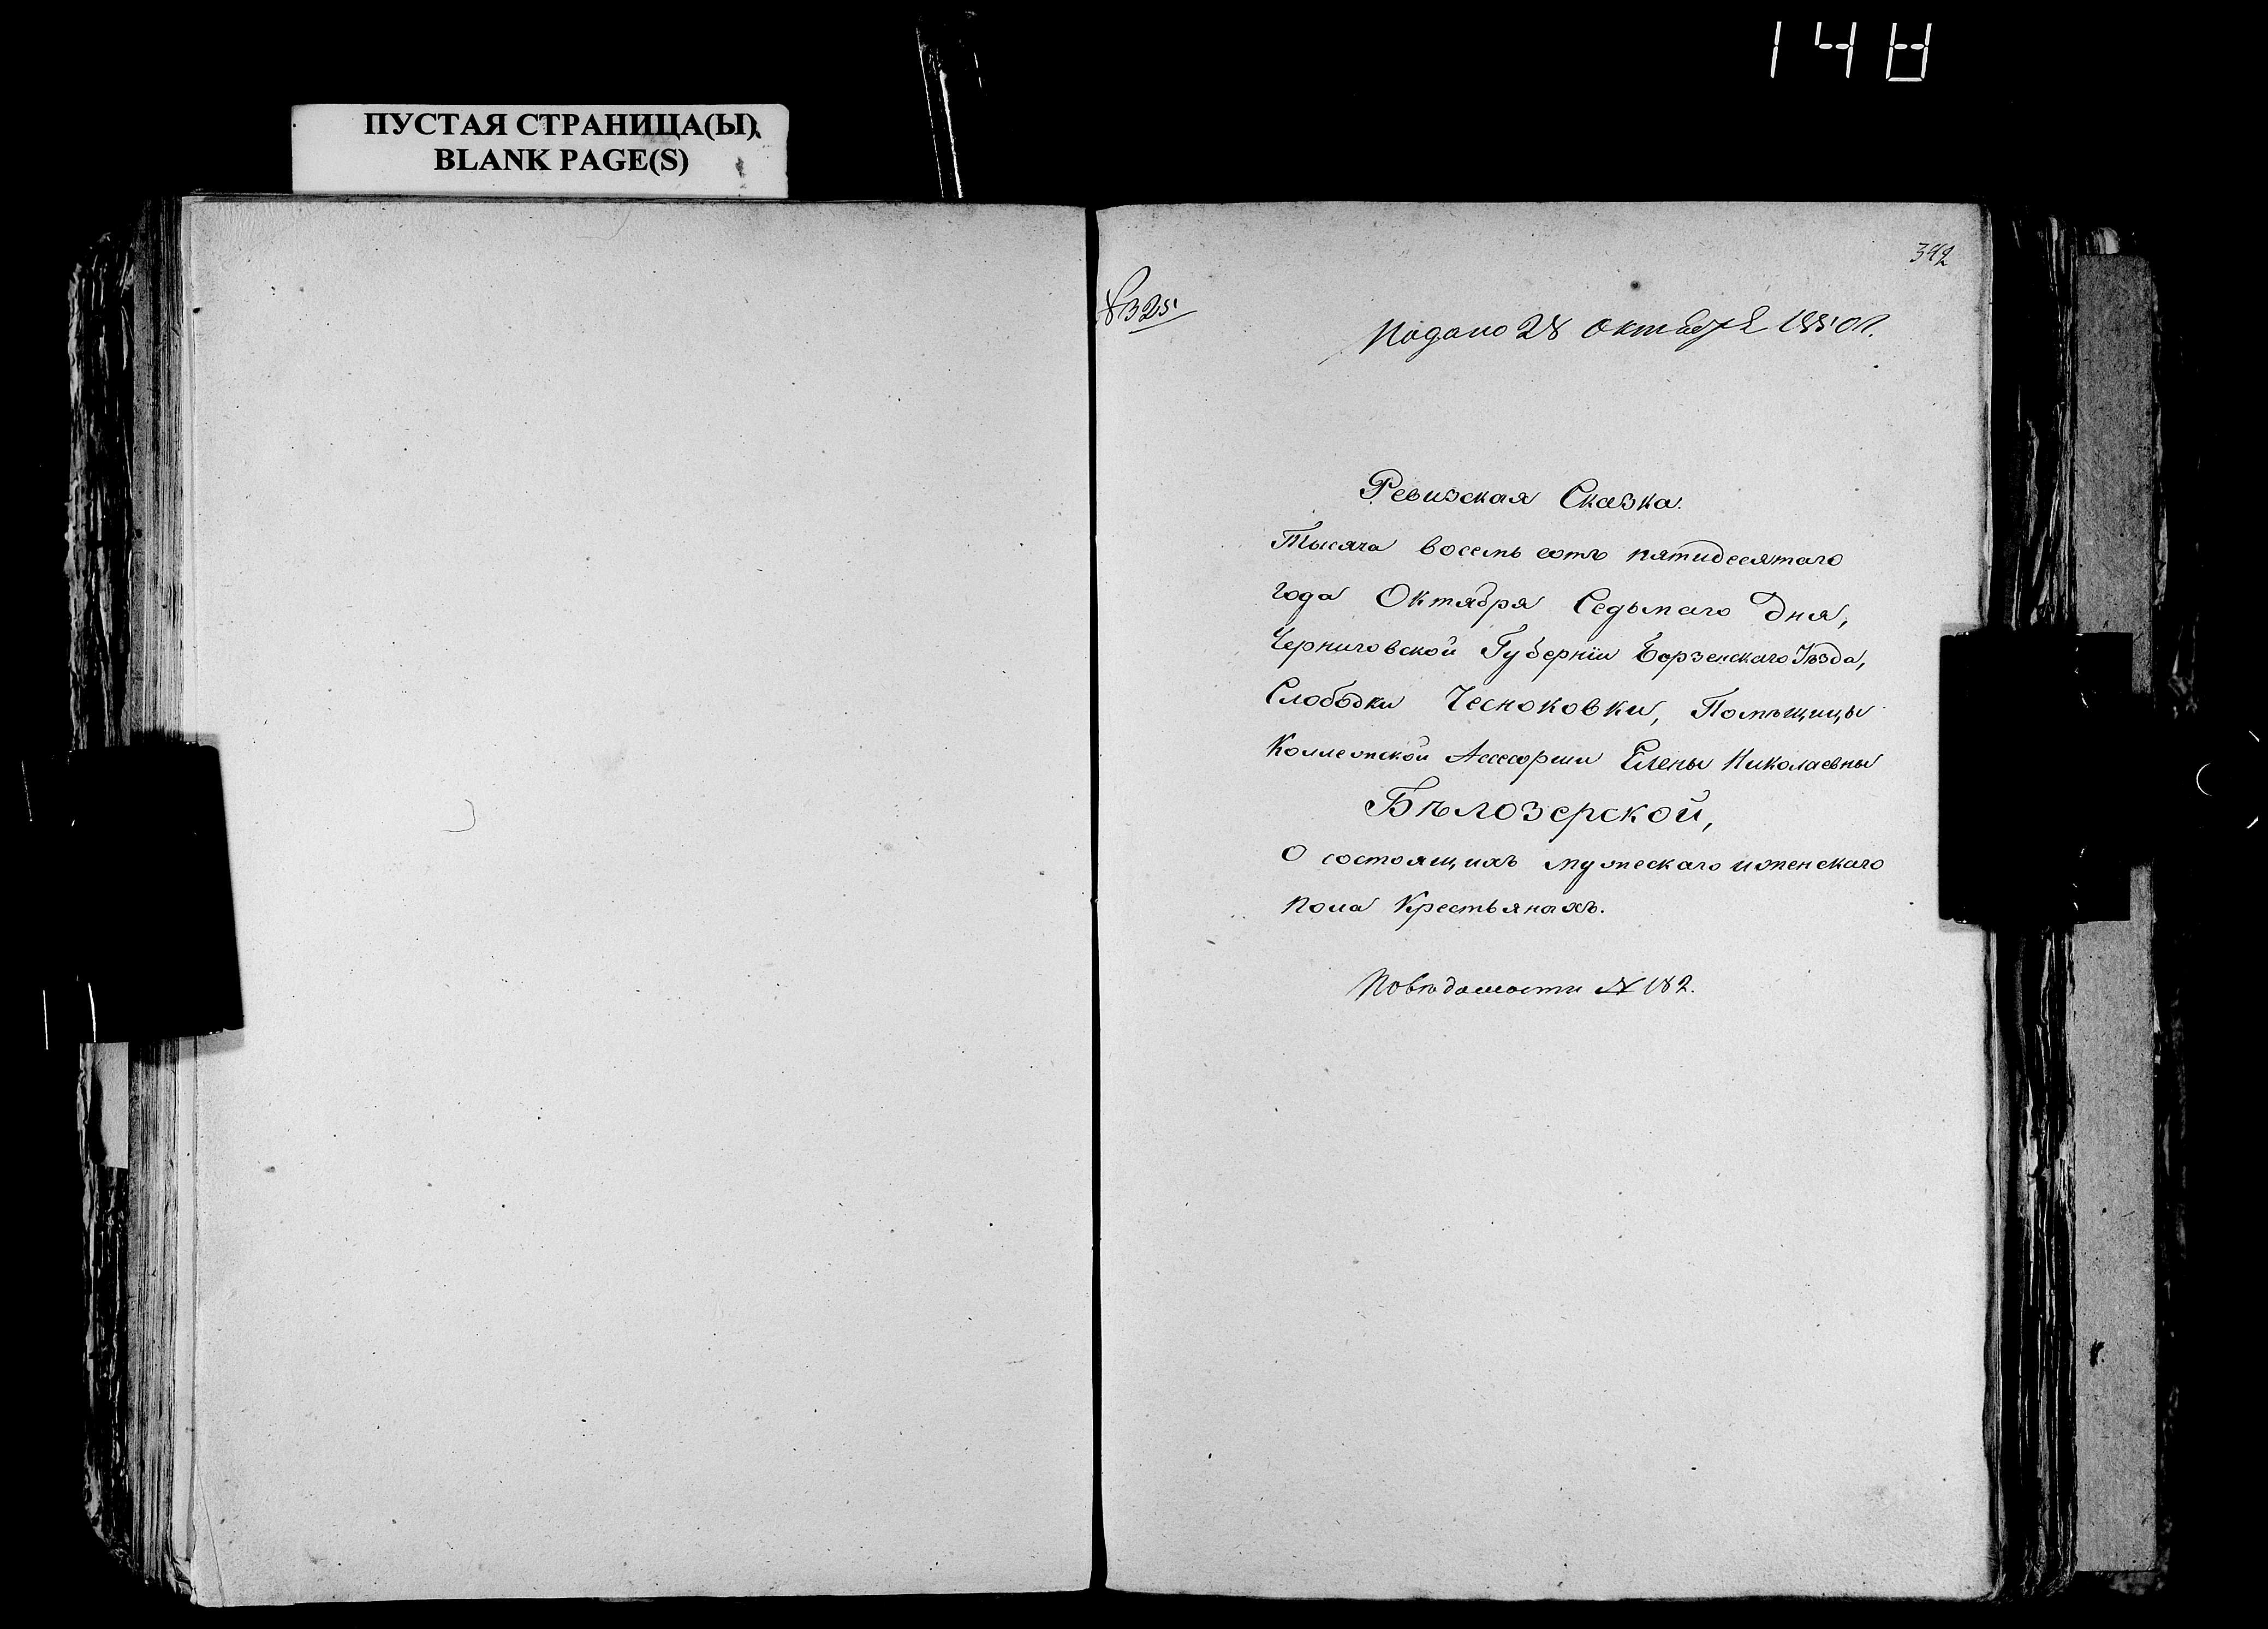 148
ПУСТАЯ СТРАНИЦА(Ы)
BLANK PAGE(S)
392
№325
Подано 28 октября 1850 г.
Ревизская Сказка.
Тысяча восемь сотъ пятидесятаго
года Октября Седьмаго дня,
Черниговской Губерніи Борзенскаго Уѣзда,
Слободки Чесноковки, Помѣщицы
Коллежской Ассесорши Елены Николаевны
Бѣлозерской,
О состоящихъ мужескаго и женскаго
пола Крестьянахъ.
По вѣдомости № 182.